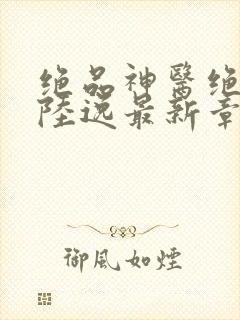 绝品神醫绝
陸逸最新章
御風如煙